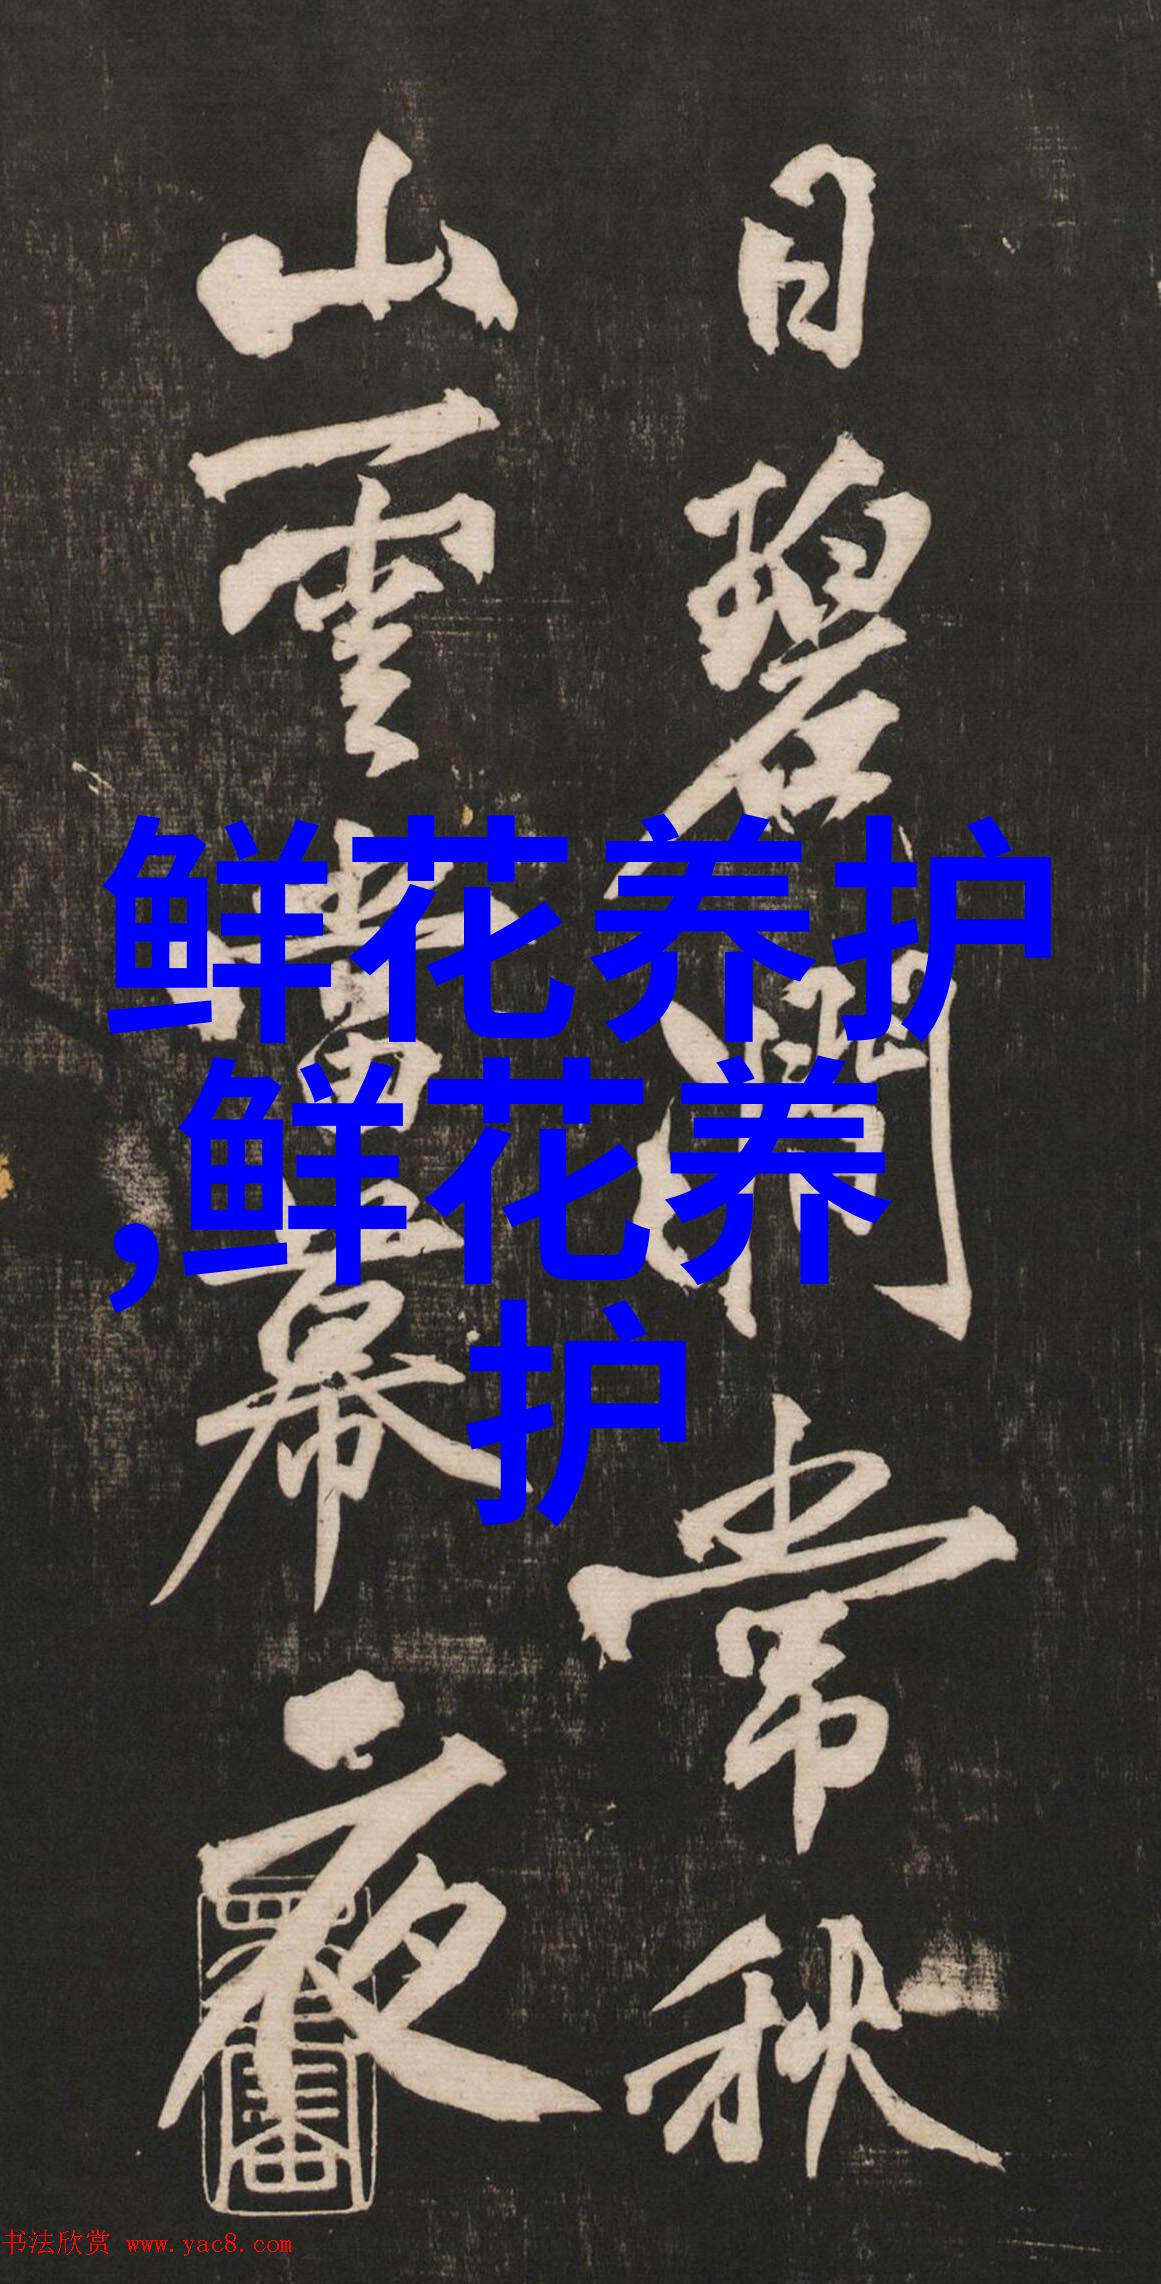 日碧澗常秋
山雲當幕夜
鲜花养护
,鲜花养
护
书法欣赏 www.yac8.com